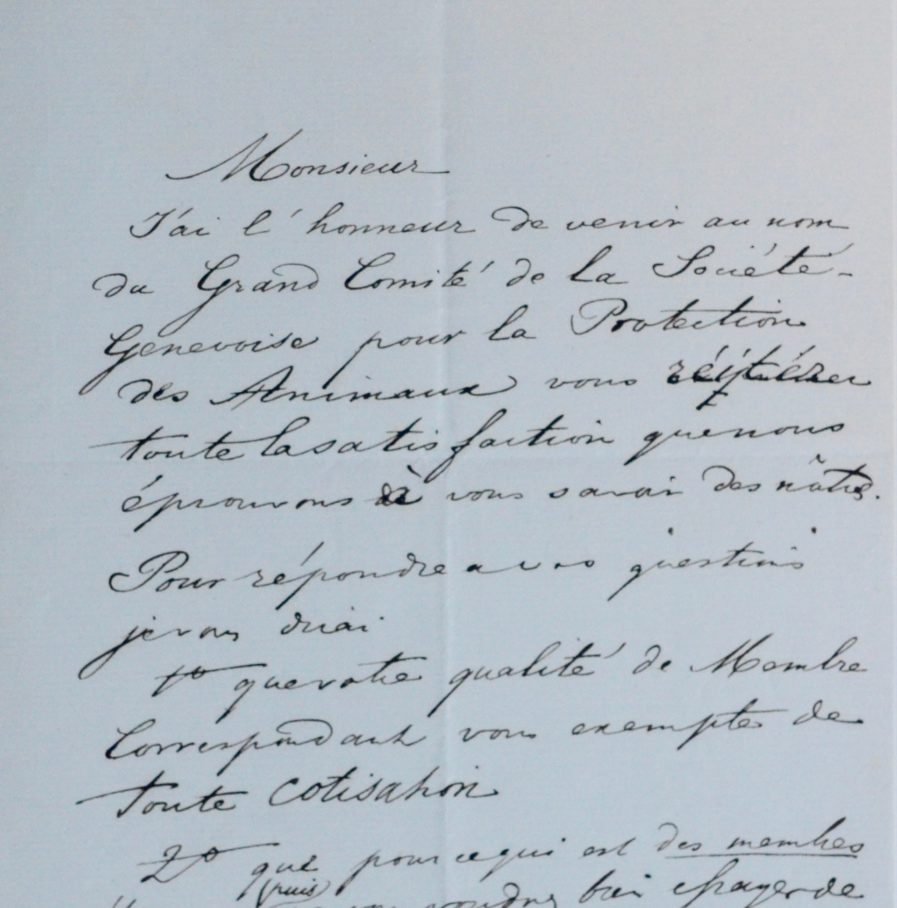 Monsieur
J'ai l'honneur de venir au nom
du Grand Comité de la Société
Genevoise pour la Protection
des Animaux vous
toute la satisfaction que nous
éprouvons à vous savoir des nôtres.
Pour répondre a vos questions
je vous dirai
1º que votre qualité de Membre
Correspondant vous exempte de
toute cotisation
2º que pour ce qui est des membres
(puis) bien de